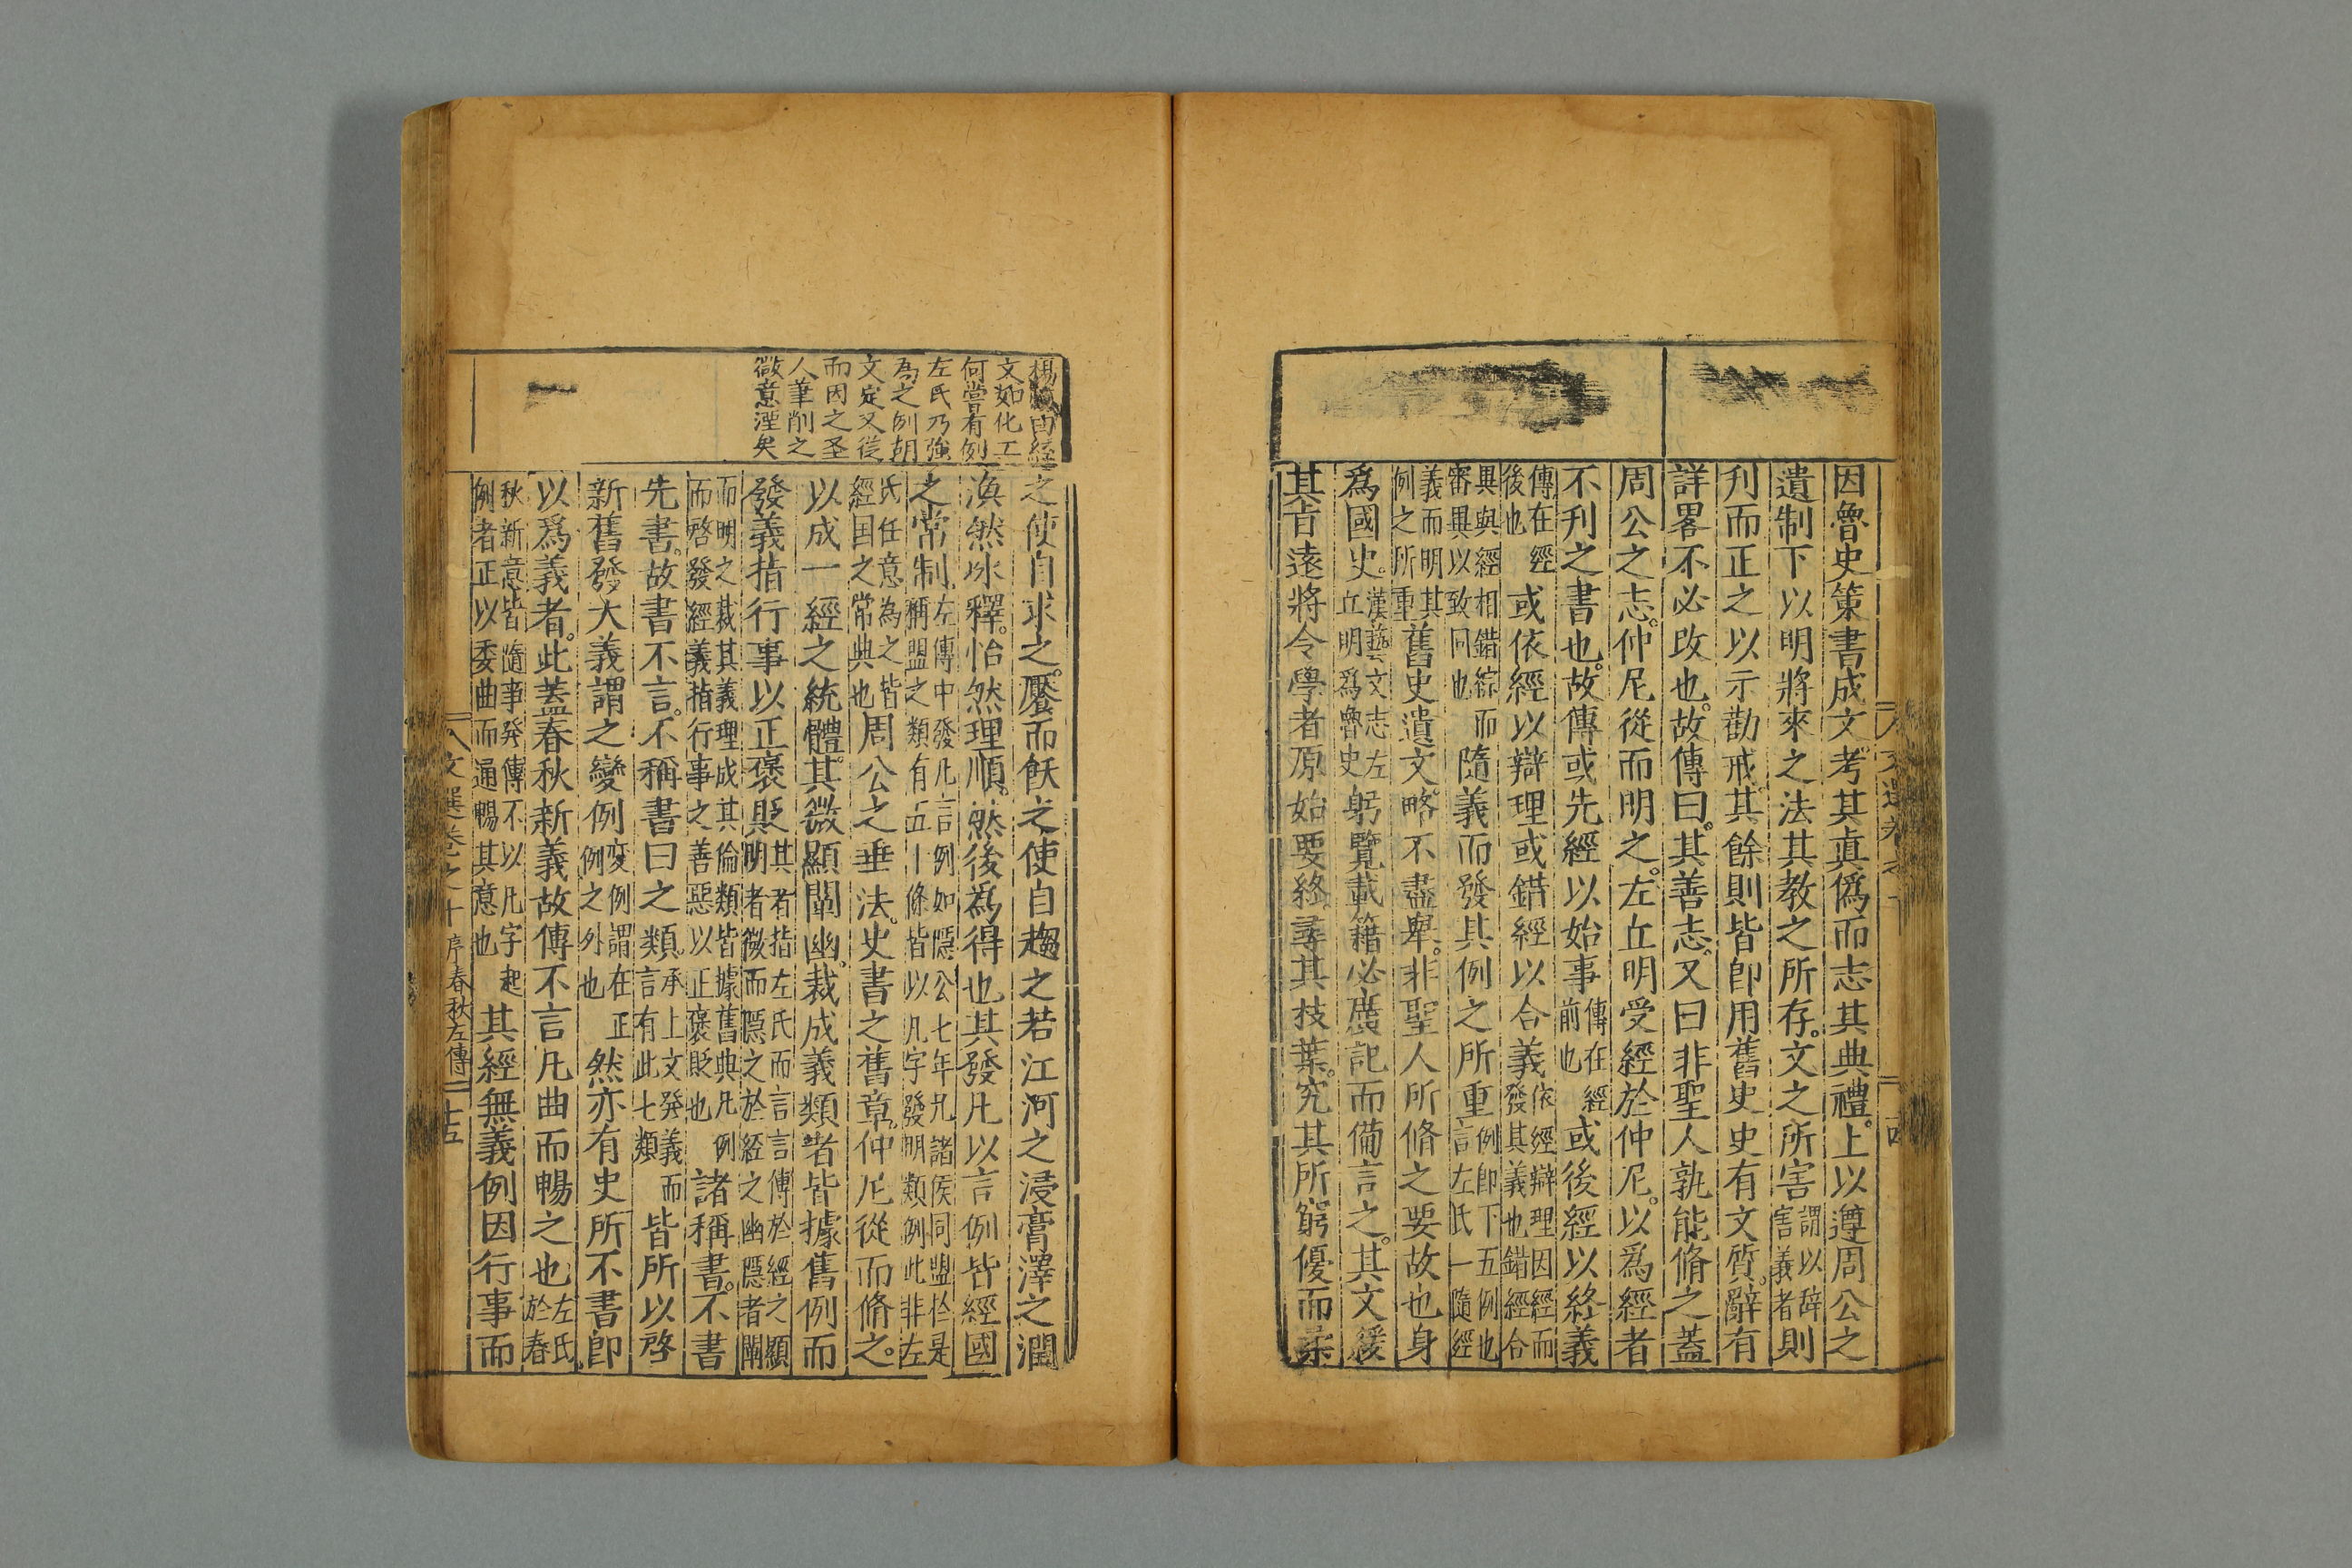 因魯史策書成文考其真偽而志其典禮上以遵周公之
遺制下以明將來之法其教之所存文之所害謂以辭害義者則
刋而正之以示勸戒其餘則皆卽用舊史史有文質辭有
詳畧不必改也故傳曰其善志又曰非聖人孰能脩之蓋
周公之志仲尼從而明之左丘明受經於仲尼以爲經者
不刋之書也故傳或先經以始事傳在經前也或後經以終義
傳在經後也或依經以辯理或錯經以合義依經辯理因經而發其義也錯經合
異與經相錯綜而審異以致同也隨義而發其例之所重例即下五例也言左氏一隨經
義而明其例之所重舊史遺文略不盡舉非聖人所脩之要故也身
爲國史漢藝文志左丘明爲魯史躬覽載籍必廣記而備言之其文緩
其旨遠將令學者原始要終尋其技葉究其所窮優而柔
文選卷之十
楊 由經
文如化工
何嘗有例
左氏乃強
為之例胡
文定又從
而因之圣
人筆削之
微意湮矣
之使自求之饜而飫之使自趨之若江河之浸膏澤之潤
渙然冰釋怡然理順然後為得也其發凡以言例皆經國
之常制左傳中發凡言例如隱公七年凡諸侯同盟於是稱盟之類有五十條皆以凡字發明類例此非左
氏任意為之皆經国之常典也周公之垂法史書之舊章仲尼從而脩之
以成一經之統體其微顯闡幽裁成義類者皆據舊例而
發義指行事以正褒貶其有指左氏而言言傳於經之顯明者微而隱之於經之幽隱者闡
而明之裁其義理成其倫類皆據舊典凡例而啓發經義指行事之善惡以正褒貶也諸稱書不書
先書故書不言不稱書曰之類承上文発義而言有此七類皆所以啓
新舊發大義謂之變例変例謂在正例之外也然亦有史所不書卽
以爲義者此蓋春秋新義故傳不言凡曲而暢之也左氏於春
秋新意皆隨事発傳不以凡字起例者正以委曲而通暢其意也其經無義例因行事而
文選卷之十 序春秋左傳 十五